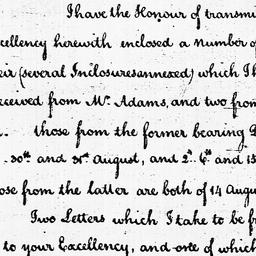 I have the Honour of transmi
cellency herewith enclosed a Number of
eir (several Inclosures annexed) which I h
eceived from Mr. Adams, and two from
those from the former bearing D
30th and 31st August, and 2d. 6th and 15
ose from the latter are both of 14 Augu
Two Letters which I take to be fr
to your Excellency, and one of which